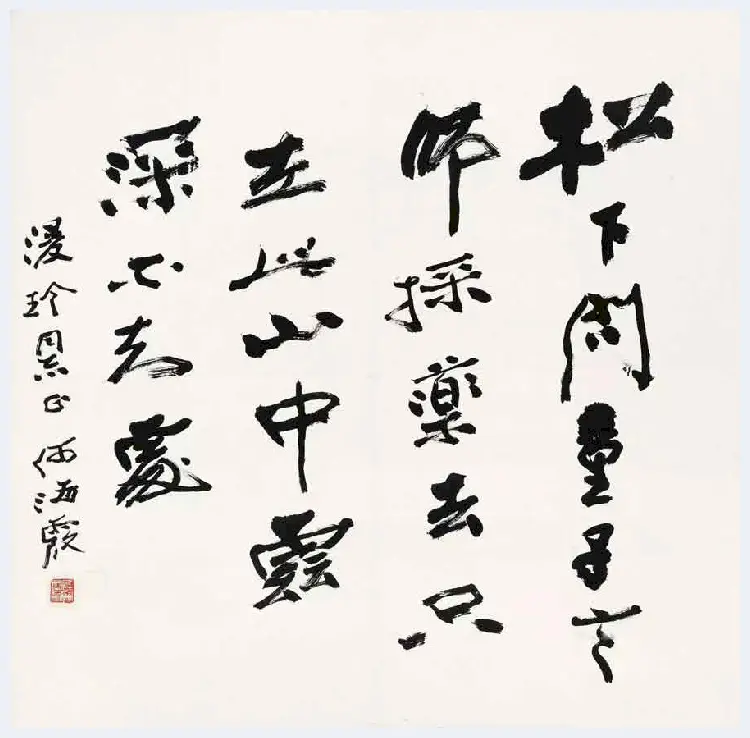 松下問童子言
師採藥去只
在此山中雲
深不知處
玲同志正 何海霞